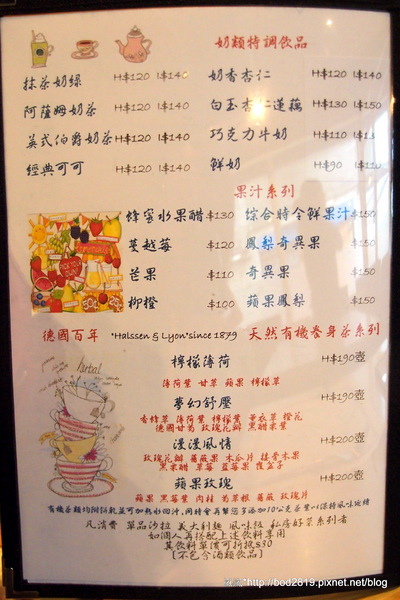 奶類特調飲品
抹茶奶綠 H$120 I$140 奶香杏仁 H$120 I$140
阿薩姆奶茶 H$120 I$140 白玉杏仁蓮藕 H$130 I$150
英式伯爵奶茶 H$120 I$140 巧克力牛奶 H$110
經典可可 H$120 I$140 鮮奶 H$90 I$110
果汁系列
蜂蜜水果醋 $130 綜合時令鮮果汁 $150
蔓越莓 $120 鳳梨奇異果 $150
芒果 $110 奇異果 $150
柳橙 $100 蘋果鳳梨 $150
德國百年 "Halssen & Lyon"since 1879 天然有機養身茶系列
檸檬薄荷 H$190壺
薄荷葉 甘草 蘋果 檸檬草
夢幻舒壓 H$190壺
香蜂草 薄荷葉 檸檬葉 薰衣草 橙花
德國甘菊 玫瑰花瓣 黑醋栗葉
漫漫風情 H$200壺
玫瑰花瓣 薔薇果 木瓜片 接骨木果
黑米醋 草莓 藍莓果 覆盆子
蘋果玫瑰 H$200壺
蘋果 黑莓葉 肉桂 菊草根 薔薇 玫瑰片
有機茶類均附餅乾並可加熱水回沖,同時會再幫您多添加10公克茶葉
凡消費 單品沙拉 義大利麵 風味飯 私房好菜系列者
如個人再搭配上述飲料享用
其飲料單價可折抵$30
[不包含酒類飲品]
http://bod2819.pixnet.net/blog